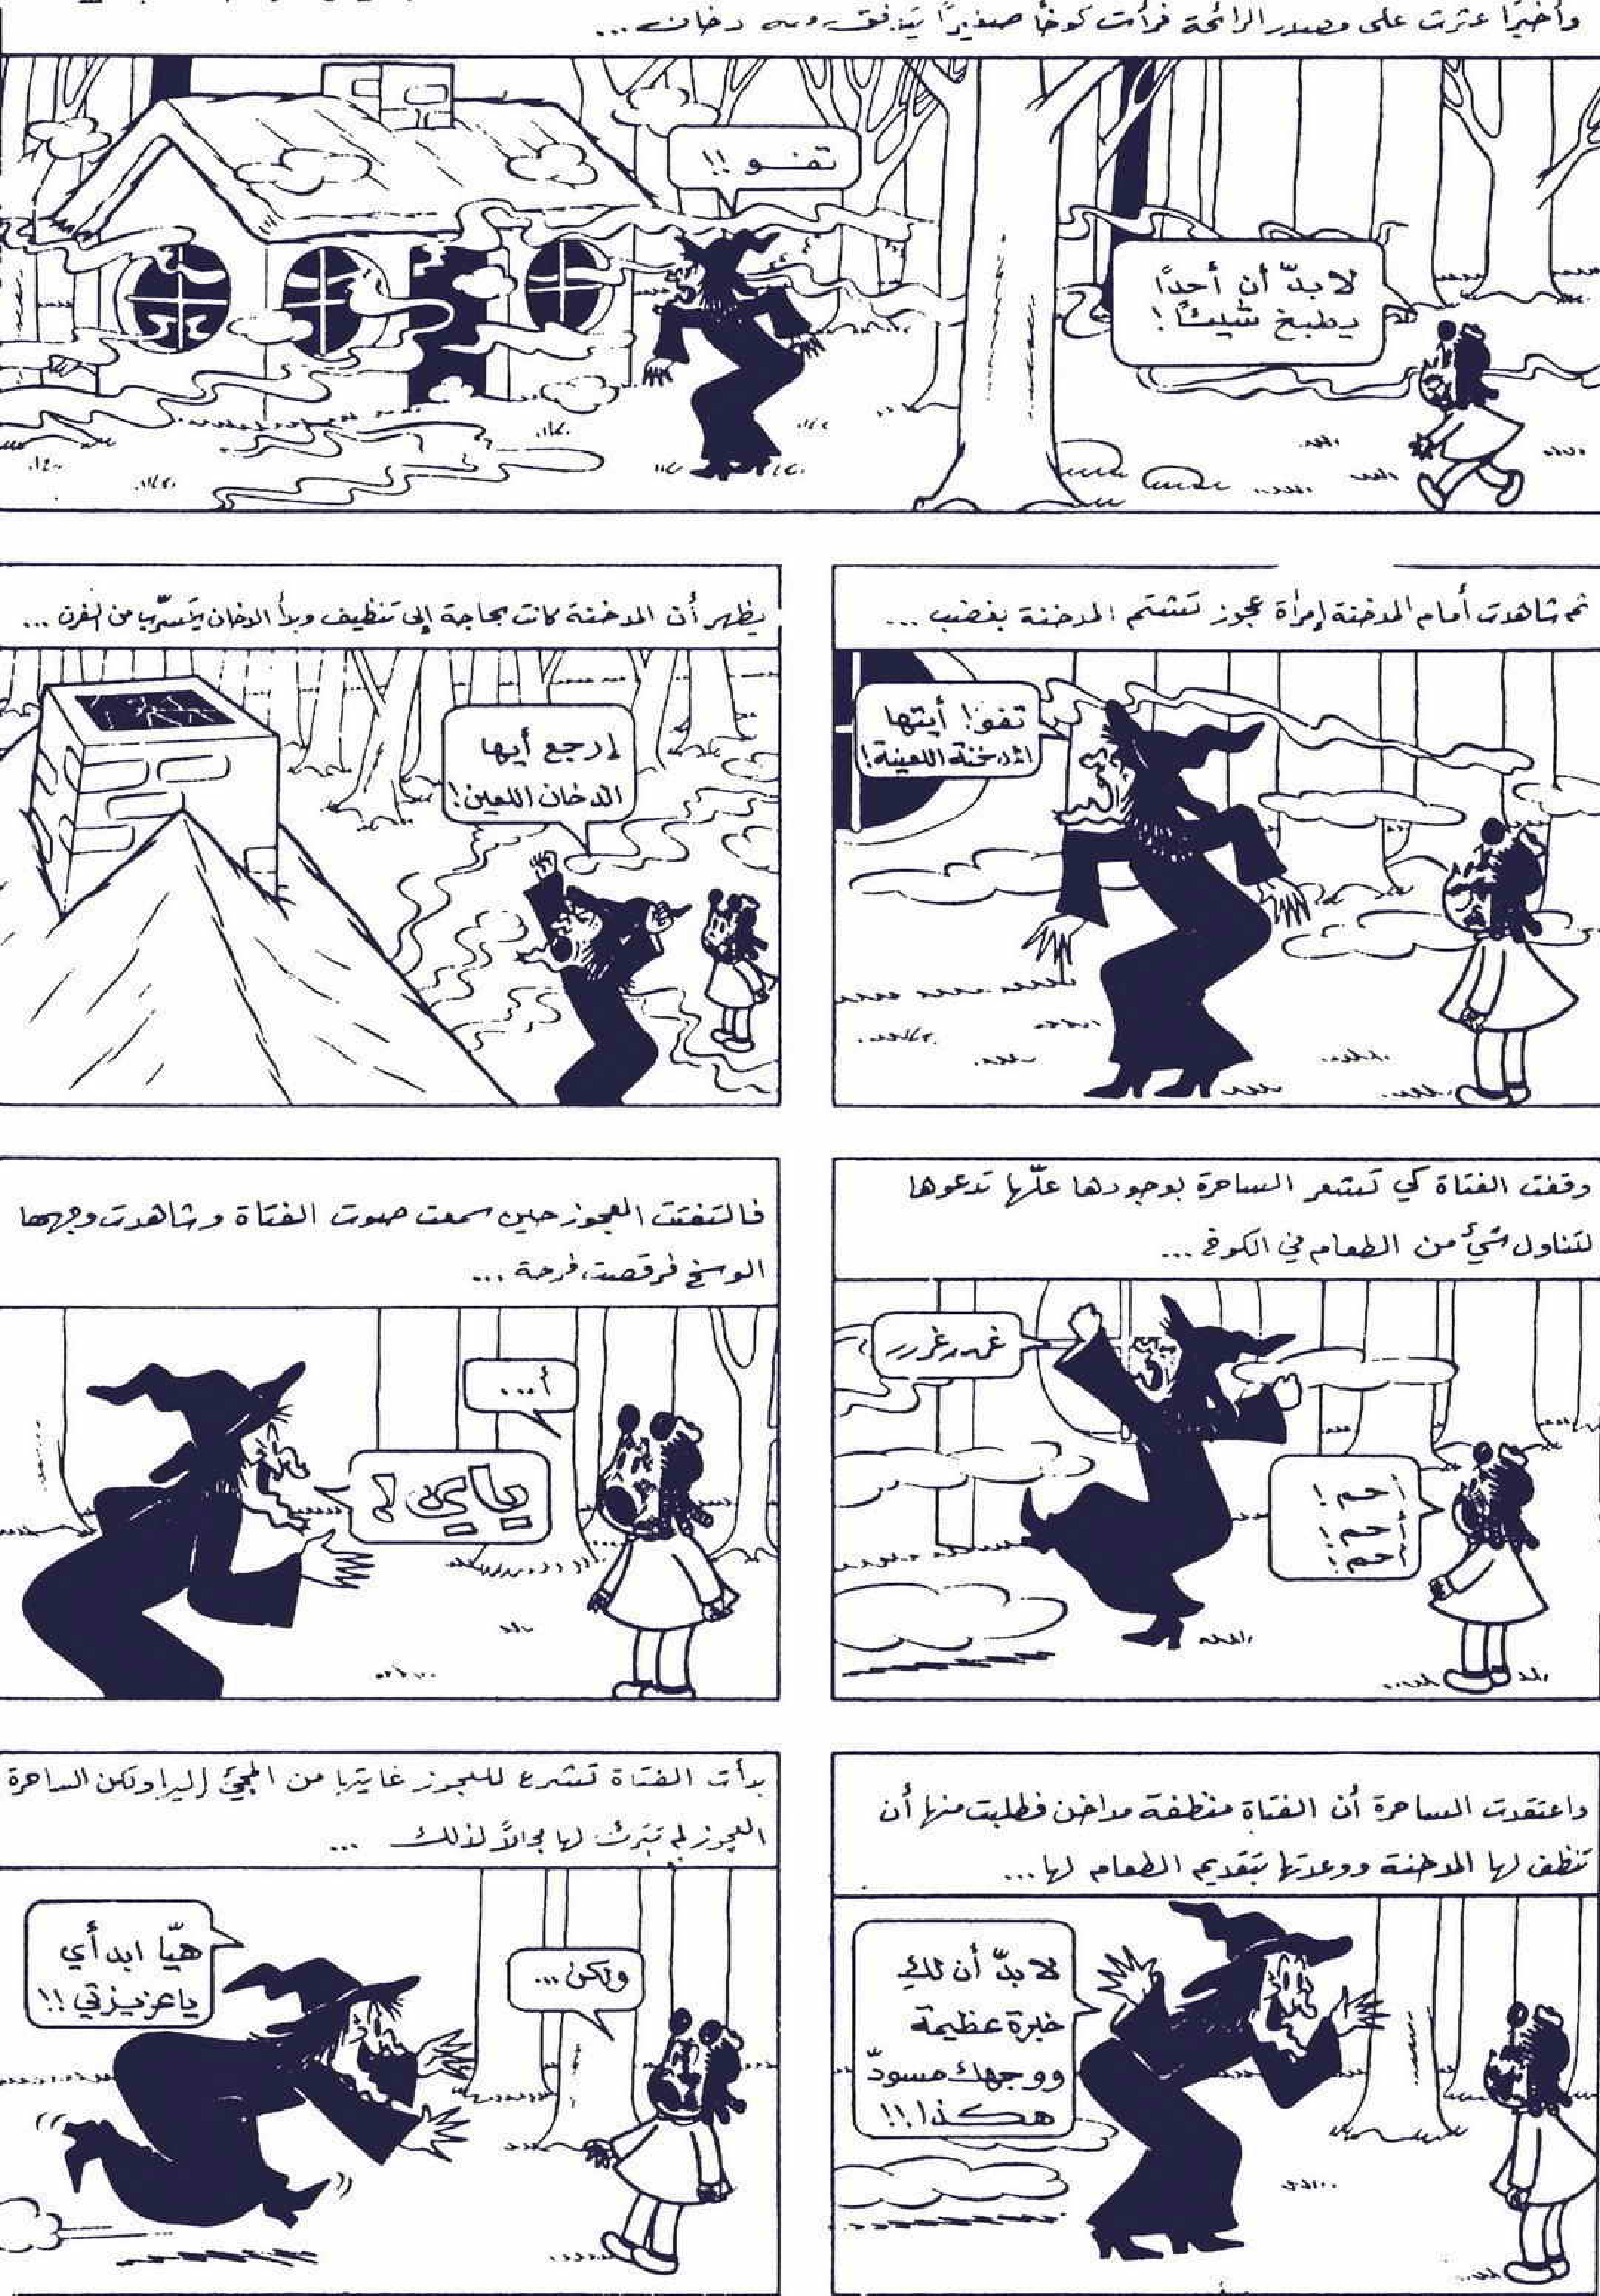 وأخيرًا عثرت على مصدر الرائحة فرأت كوخًا صغيرًا يتدفق منه دخان...
لا بدّ أن أحدًا
يطبخ شيئًا!
تفو !!
ثم شاهدت أمام المدخنة إمرأة عجوز تشتم المدخنة بغضب ...
تفو! أيتها
المدخنة اللعينة!
يظهر أن المدخنة كانت بحاجة إلى تنظيف وبدأ الدخان يتسرّب من الفرن ...
إرجع أيها
الدخان اللعين!
وقفت الفتاة كي تشعر الساحرة بوجودها علّها تدعوها
لتناول شيُ من الطعام في الكوخ ...
أحم!
أحم!
أحم!
فالتفتت العجوز حين سمعت صوت الفتاة وشاهدت وجهها
الوسخ فرقصت فرحة ...
أ...
ياي!
واعتقدت الساحرة أن الفتاة منظفة مداخن فطلبت منها أن
تنظف لها المدخنة ووعدتها بتقديم الطعام لها...
لا بدّ أن لكِ
خبرة عظيمة
ووجهك مسودّ
هكذا!!
بدأت الفتاة تشرح للعجوز غايتها من المجئ إليها ولكن الساحرة
العجوز لم تترك لها مجالاً لذلك ...
ولكن...
هيّا ابدأي
يا عزيزتي!!